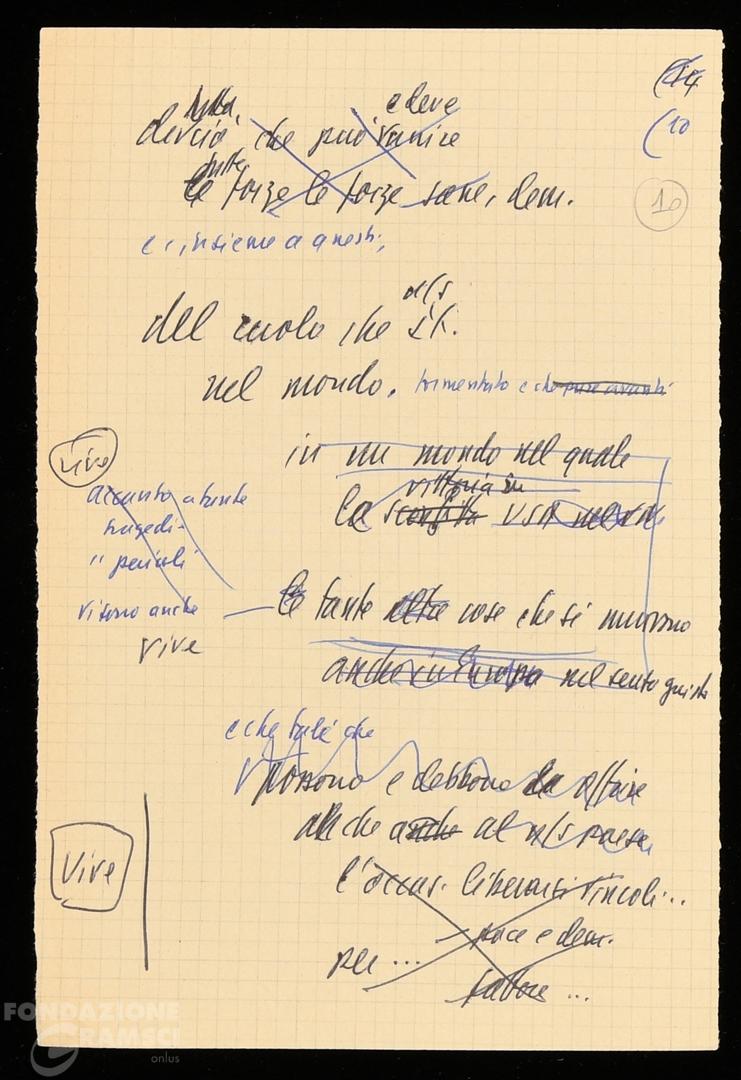 (14
(10
10
e deve
che può venire
tutte
le forze le forze sane, dem.
e, insieme a questi,
del ruolo che
n/s
nel mondo. tormentato e che
in un mondo nel quale
vive
vittoria in
la sconfitta USA nel
accanto a tante
tragedi-
" pericoli
vi sono anche
vive
le tante altre cose che si muovono
anche in Europa nel senso giusto
e che fa sì che
possono e debbono da offrire
anche anche al n/s paese
l'occas. liberarsi vincoli...
Vive
pace e dem.
per ...
FONDAZIONE
GRAMSCI
onlus